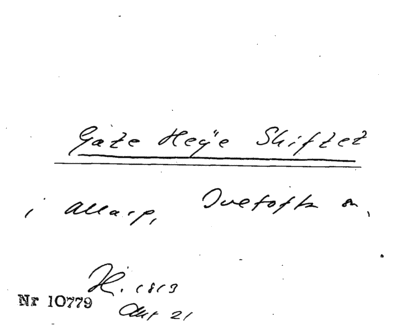 Gate Heye Skiftet
i Allarp, Ivetofta sn,
H. 1813
Nr 10779 Akt 21